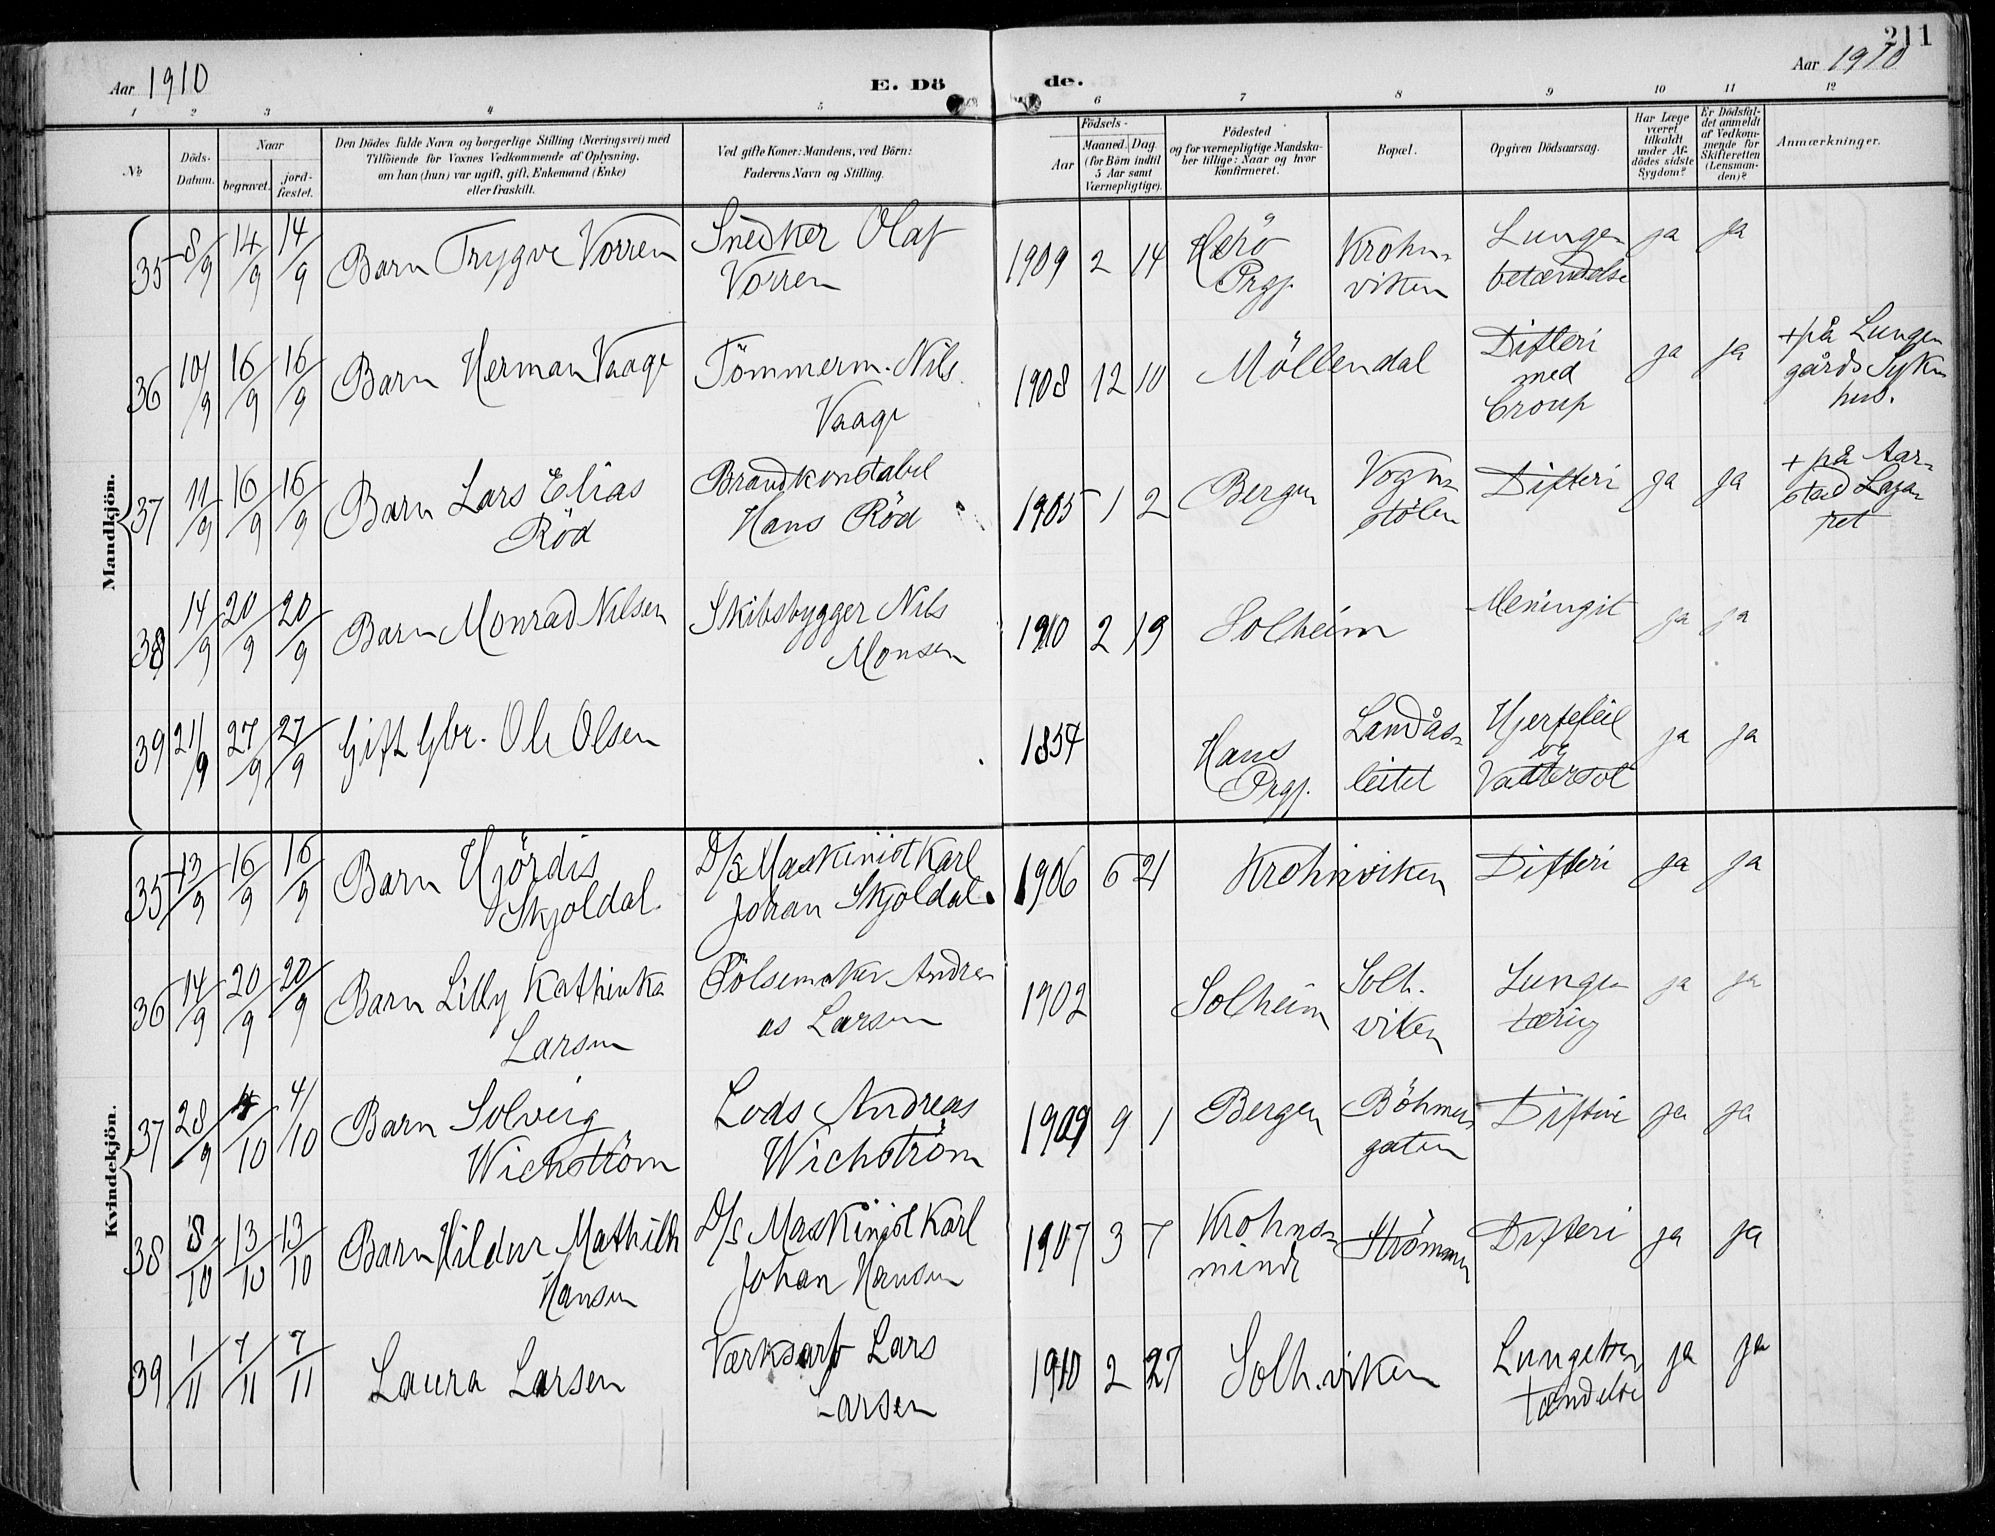 211
Aar 1910
E. Dö de.
Aar 1910
1 2 3 4 5 6 7 8 9 10 11 12
No
Döds-Datum.
Naar
begravet.
jord-fæstet.
Den Dödes fulde Navn og borgerlige Stilling (Næringsvei) med
Tilföiende for Voxnes Vedkommende af Oplysning,
om han (hun) var ugift, gift, Enkemand (Enke)
eller fraskilt.
Ved gifte Koner: Mandens, ved Börn:
Faderens Navn og Stilling.
Födsels-
Aar
Maaned. Dag.
(for Börn indtil
5 Aar samt
Værnepligtige).
Födested
og for værnepligtige Mandska-
ber tillige: Naar og hvor
konfirmeret.
Bopæl.
Opgiven Dödsaarsag.
Har Læge
været
tilkaldt
under Af-
dödes sidste
Sygdom?
Er Dödsfal-
det anmeldt
af Vedkom-
mende for
Skifteretten
(Lensman-
den)?
Anmærkninger.
Mandkjön.
35 8/9 14/9 14/9 Barn Trygve Vorren Snedker Olaf 1909 2 14 Herö Krohn- Lunge ja ja
Vorren Prgj. viken betændelse
36 10/9 16/9 16/9 Barn Herman Vaage Tömmerm. Nils 1908 12 10 Möllendal Difteri ja ja + på Lungen
Vaage med gårds Syke
Croup hus.
37 11/9 16/9 16/9 Barn Lars Elias Brandkonstabel 1905 1 2 Bergen Vogn- Difteri ja ja + på Aar-
Röd Hans Röd stölen stad Laza-
ret
38 14/9 20/9 20/9 Barn Monrad Nilsen Skibsbygger Nils 1910 2 19 Solheim Meningit ja ja
Monsen
39 21/9 27/9 27/9 Gift Gbr. Ole Olsen 1854 Hans Landås- Hjertefeil ja ja
Prgj. leitet og
Vattersot
Kvindekjön.
35 13/9 16/9 16/9 Barn Hjördis D/S Maskinist Karl 1906 6 21 Krohnviken Difteri ja ja
Skjoldal Johan Skjoldal
36 14/9 20/9 20/9 Barn Lilly Kathinka Pölsemaker Andre 1902 Solheim Solh. Lunge ja ja
Larsen as Larsen viken tæring
37 28/9 4/10 4/10 Barn Solveig Lods Andreas 1909 9 1 Bergen Böhmer Difteri ja ja
Wichström Wichström gaten
38 8/10 13/10 13/10 Barn Hildur Mathilde D/S Maskinist Karl 1907 3 7 Krohns- Strömmen Difteri ja ja
Hansen Johan Hansen minde
39 1/11 7/11 7/11 Laura Larsen Værksarb Lars 1910 2 27 Solh.viken Lungebe ja ja
Larsen tændelse